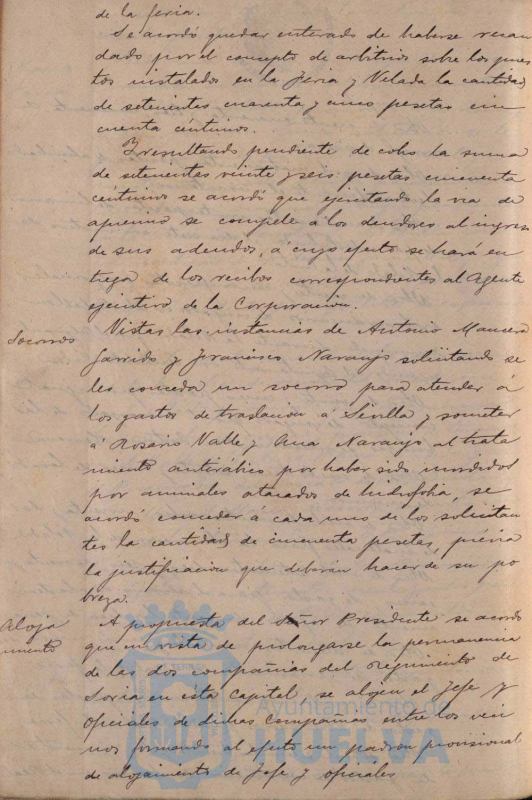 de la feria.
Se acordó quedar enterado de haberse recau
dado por el concepto de arbitrios sobre los pues
tos instalados en la Feria y Velada la cantidad
de setecientas cuarenta y cinco pesetas cin
cuenta céntimos.
Y resultando pendiente de cobro la suma
de setecientas veinte y seis pesetas cincuenta
centimos se acordó que ejercitando la via de
apremio se compela á los deudores al ingreso
de sus adeudos, á cuyo efecto se hará en
trega de los recibos correspondientes al Agente
ejecutivo de la Corporacion.
Socorros
Vistas las instancias de Antonio Mancera
Garrido y Francisco Naranjo solicitando se
les conceda un socorro para atender á
los gastos de traslacion á Sevilla y someter
á Rosario Valle y Ana Naranjo al trata
miento antirábico por haber sido mordidos
por animales atacados de hidrofobia, se
acordó conceder á cada uno de los solicitan
tes la cantidad de cincuenta pesetas, prévia
la justificacion que deberán hacer de su po
breza.
Aloja
miento
A propuesta del Señor Presidente se acordó
que en vista de prolongarse la permanencia
de las dos compañias del regimiento de
Soria en esta capital, se alojen el Jefe y
Oficiales de dichas compañias entre los veci
nos formando al efecto un padron provisional
de alojamiento de Jefe y oficiales
Ayuntamiento de
HUELVA